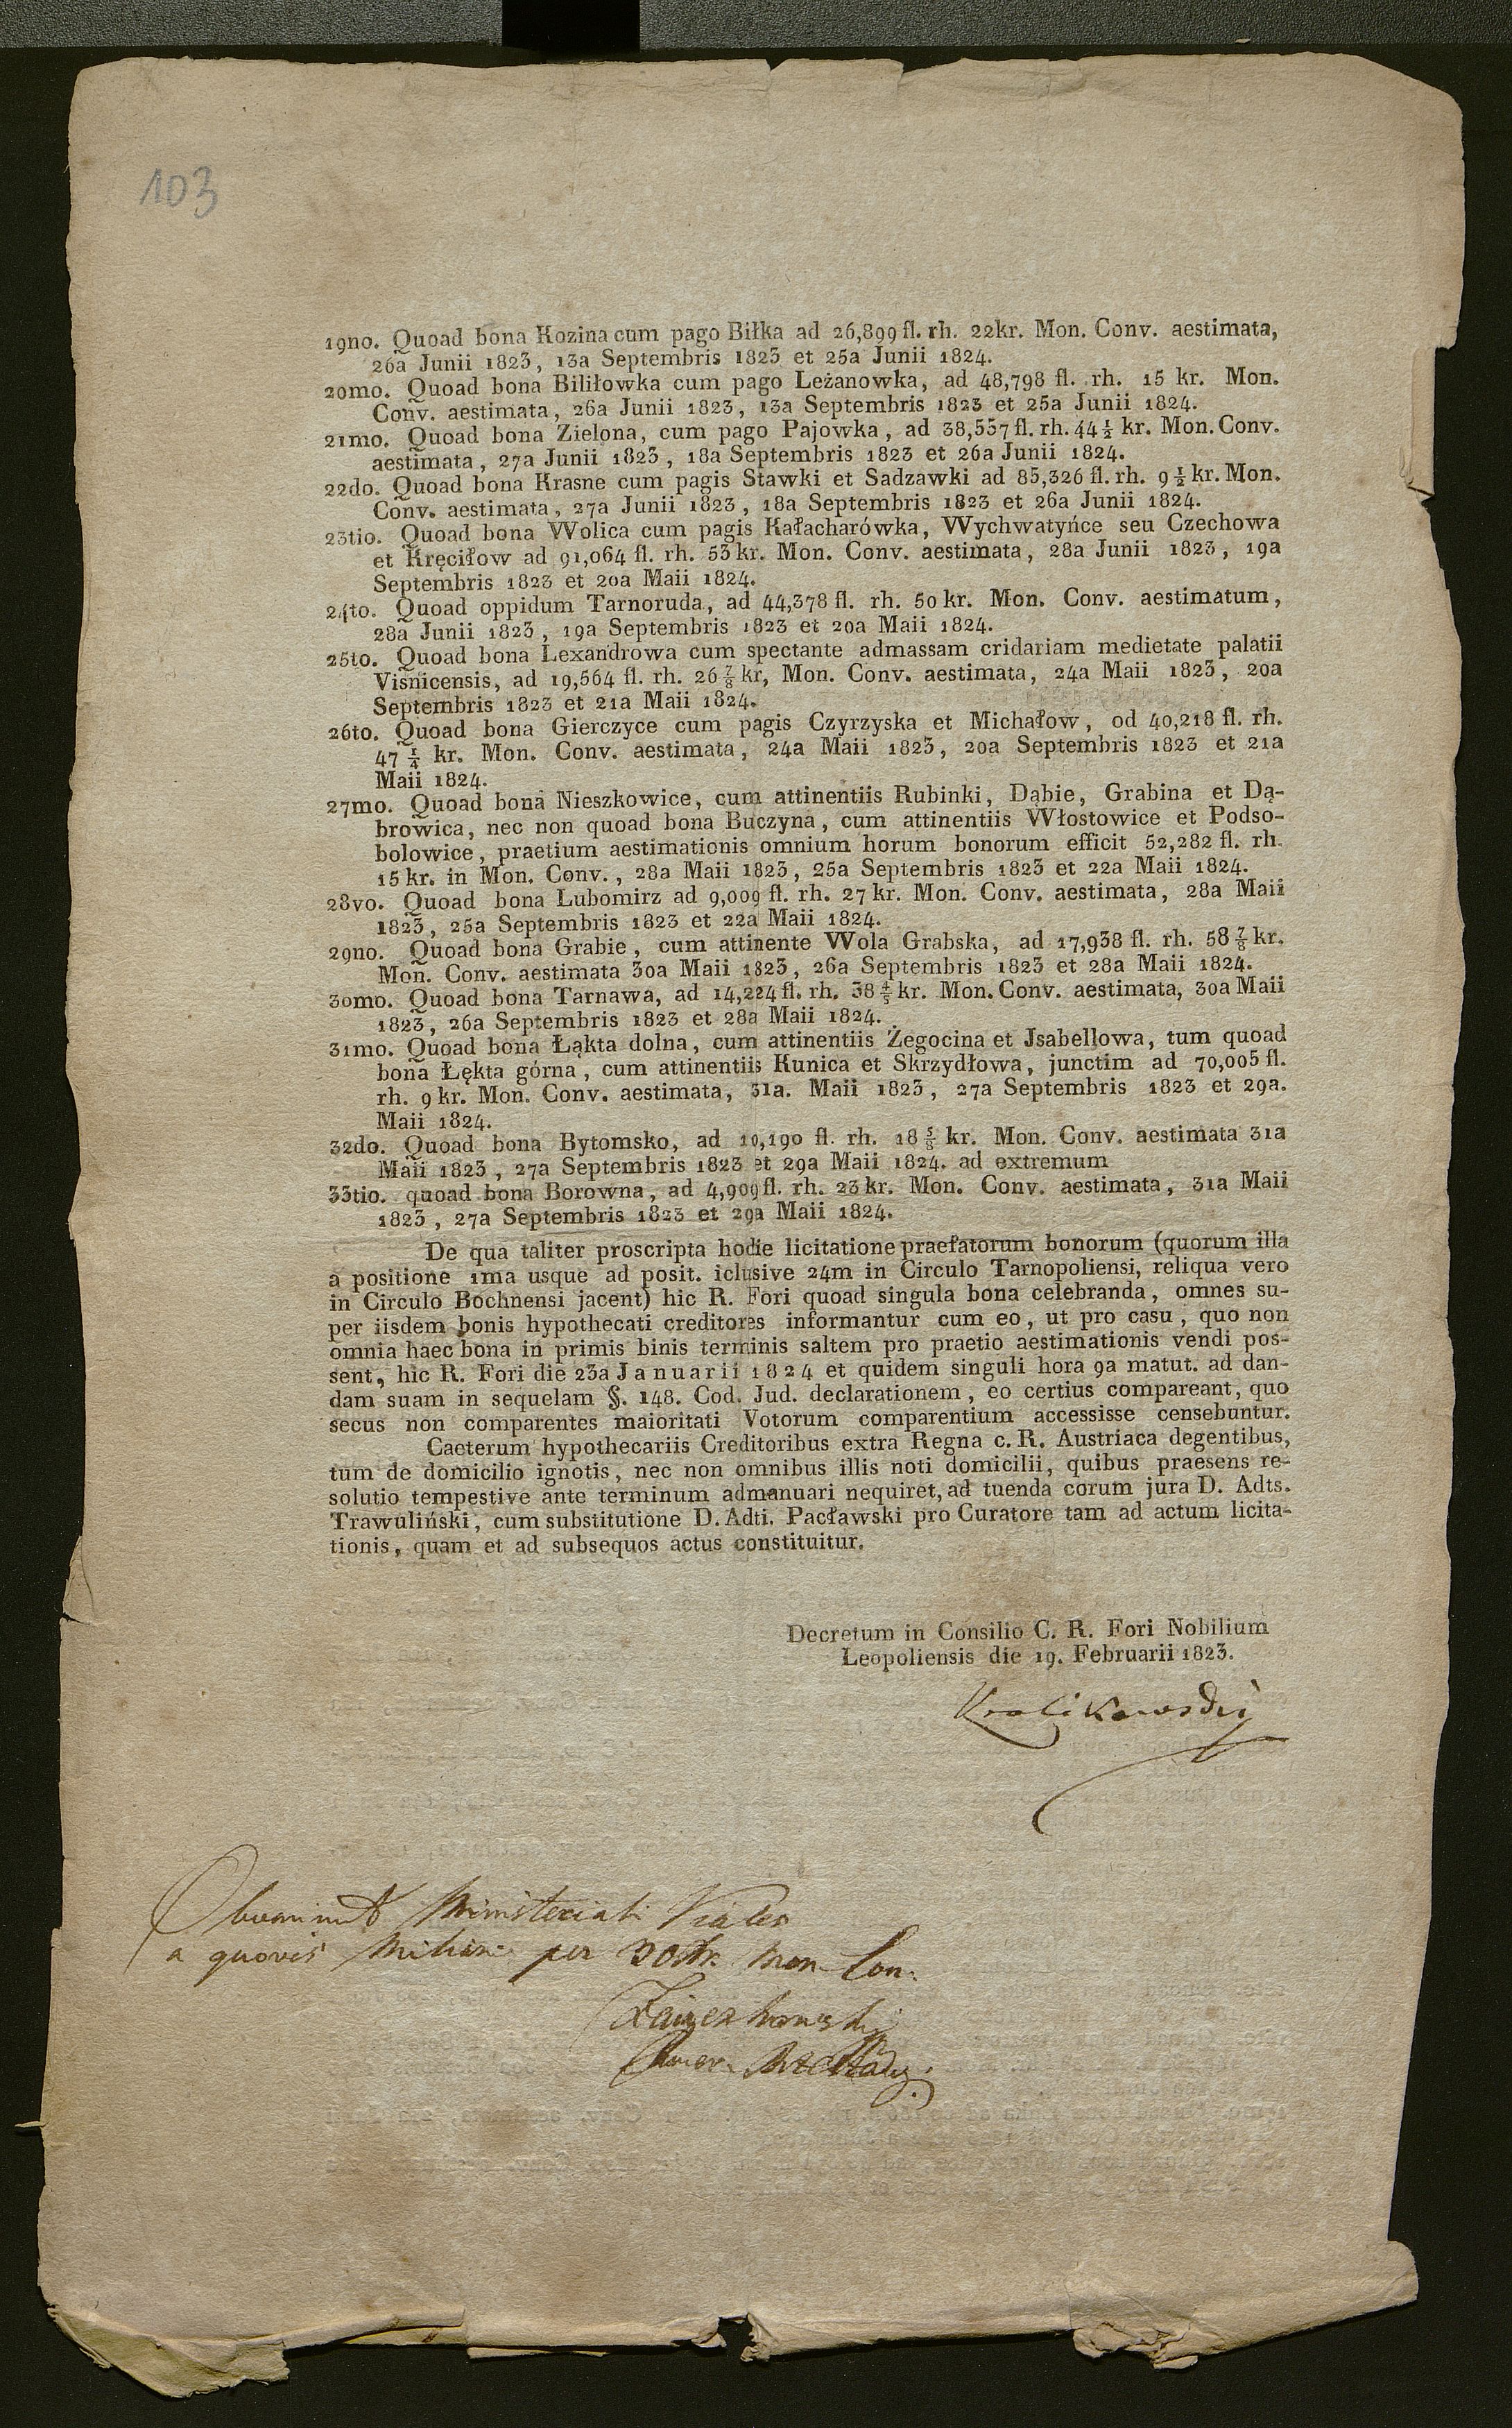 103
19no. Quoad bona Kozina cum pago Biłka ad 26,899 fl. rh. 22kr. Mon. Conv. aestimata,
26a Junii 1823, 13a Septembris 1823 et 25a Junii 1824.
20mo. Quoad bona Biliłowka cum pago Leżanowka, ad 48,798 fl. rh. 15 kr. Mon.
Conv. aestimata, 26a Junii 1823, 13a Septembris 1823 et 25a Junii 1824.
21mo. Quoad bona Zielona, cum pago Pajowka, ad 38,557 fl. rh. 44 1/2 kr. Mon. Conv.
aestimata, 27a Junii 1823, 18a Septembris 1823 et 26a Junii 1824.
22do. Quoad bona Krasne cum pagis Stawki et Sadzawki ad 85,326 fl. rh. 9 1/2 kr. Mon.
Conv. aestimata, 27a Junii 1823, 18a Septembris 1823 et 26a Junii 1824.
23tio. Quoad bona Wolica cum pagis Kałacharówka, Wychwatyńce seu Czechowa
et Kręciłow ad 91,064 fl. rh. 53 kr. Mon. Conv. aestimata, 28a Junii 1823, 19a
Septembris 1823 et 20a Maii 1824.
24to. Quoad oppidum Tarnoruda, ad 44,378 fl. rh. 50 kr. Mon. Conv. aestimatum,
28a Junii 1823, 19a Septembris 1823 et 20a Maii 1824.
25to. Quoad bona Lexandrowa cum spectante admassam cridariam medietate palatii
Visnicensis, ad 19,564 fl. rh. 26 7/8 kr, Mon. Conv. aestimata, 24a Maii 1823, 20a
Septembris 1823 et 21a Maii 1824.
26to. Quoad bona Gierczyce cum pagis Czyrzyska et Michałow, od 40,218 fl. rh.
47 1/4 kr. Mon. Conv. aestimata, 24a Maii 1823, 20a Septembris 1823 et 21a
Maii 1824.
27mo. Quoad bona Nieszkowice, cum attinentiis Rubinki, Dąbie, Grabina et Dą-
browica, nec non quoad bona Buczyna, cum attinentiis Włostowice et Podso-
bolowice, praetium aestimationis omnium horum bonorum efficit 52,282 fl. rh.
15 kr. in Mon. Conv., 28a Maii 1823, 25a Septembris 1823 et 22a Maii 1824.
28vo. Quoad bona Lubomirz ad 9,009 fl. rh. 27 kr. Mon. Conv. aestimata, 28a Maii
1823, 25a Septembris 1823 et 22a Maii 1824.
29no. Quoad bona Grabie, cum attinente Wola Grabska, ad 17,938 fl. rh. 58 7/8 kr.
Mon. Conv. aestimata 30a Maii 1823, 26a Septembris 1823 et 28a Maii 1824.
30mo. Quoad bona Tarnawa, ad 14,224 fl. rh. 38 4/5 kr. Mon. Conv. aestimata, 30a Maii
1823, 26a Septembris 1823 et 28a Maii 1824.
31mo. Quoad bona Łąkta dolna, cum attinentiis Żegocina et Jsabellowa, tum quoad
bona Łękta górna, cum attinentiis Kunica et Skrzydłowa, junctim ad 70,005 fl.
rh. 9 kr. Mon. Conv. aestimata, 31a. Maii 1823, 27a Septembris 1823 et 29a.
Maii 1824.
32do. Quoad bona Bytomsko, ad 10,190 fl. rh. 18 5/8 kr. Mon. Conv. aestimata 31a
Maii 1823, 27a Septembris 1823 et 29a Maii 1824. ad extremum
33tio. quoad bona Borowna, ad 4,909 fl. rh. 23 kr. Mon. Conv. aestimata, 31a Maii
1823, 27a Septembris 1823 et 29a Maii 1824.
De qua taliter proscripta hodie licitatione praefatorum bonorum (quorum illa
a positione 1ma usque ad posit. iclusive 24m in Circulo Tarnopoliensi, reliqua vero
in Circulo Bochnensi jacent) hic R. Fori quoad singula bona celebranda, omnes su-
per iisdem bonis hypothecati creditores informantur cum eo, ut pro casu, quo non
omnia haec bona in primis binis terminis saltem pro praetio aestimationis vendi pos-
sent, hic R. Fori die 23a Januarii 1824 et quidem singuli hora 9a matut. ad dan-
dam suam in sequelam §. 148. Cod. Jud. declarationem, eo certius compareant, quo
secus non comparentes maioritati Votorum comparentium accessisse censebuntur.
Caeterum hypothecariis Creditoribus extra Regna c. R. Austriaca degentibus,
tum de domicilio ignotis, nec non omnibus illis noti domicilii, quibus praesens re-
solutio tempestive ante terminum admanuari nequiret, ad tuenda corum jura D. Adts.
Trawuliński, cum substitutione D. Adti. Pacławski pro Curatore tam ad actum licita-
tionis, quam et ad subsequos actus constituitur.
Decretum in Consilio C. R. Fori Nobilium
Leopoliensis die 19. Februarii 1823.
Kralikowski
Ministeriali
a quovis per Mon Con: